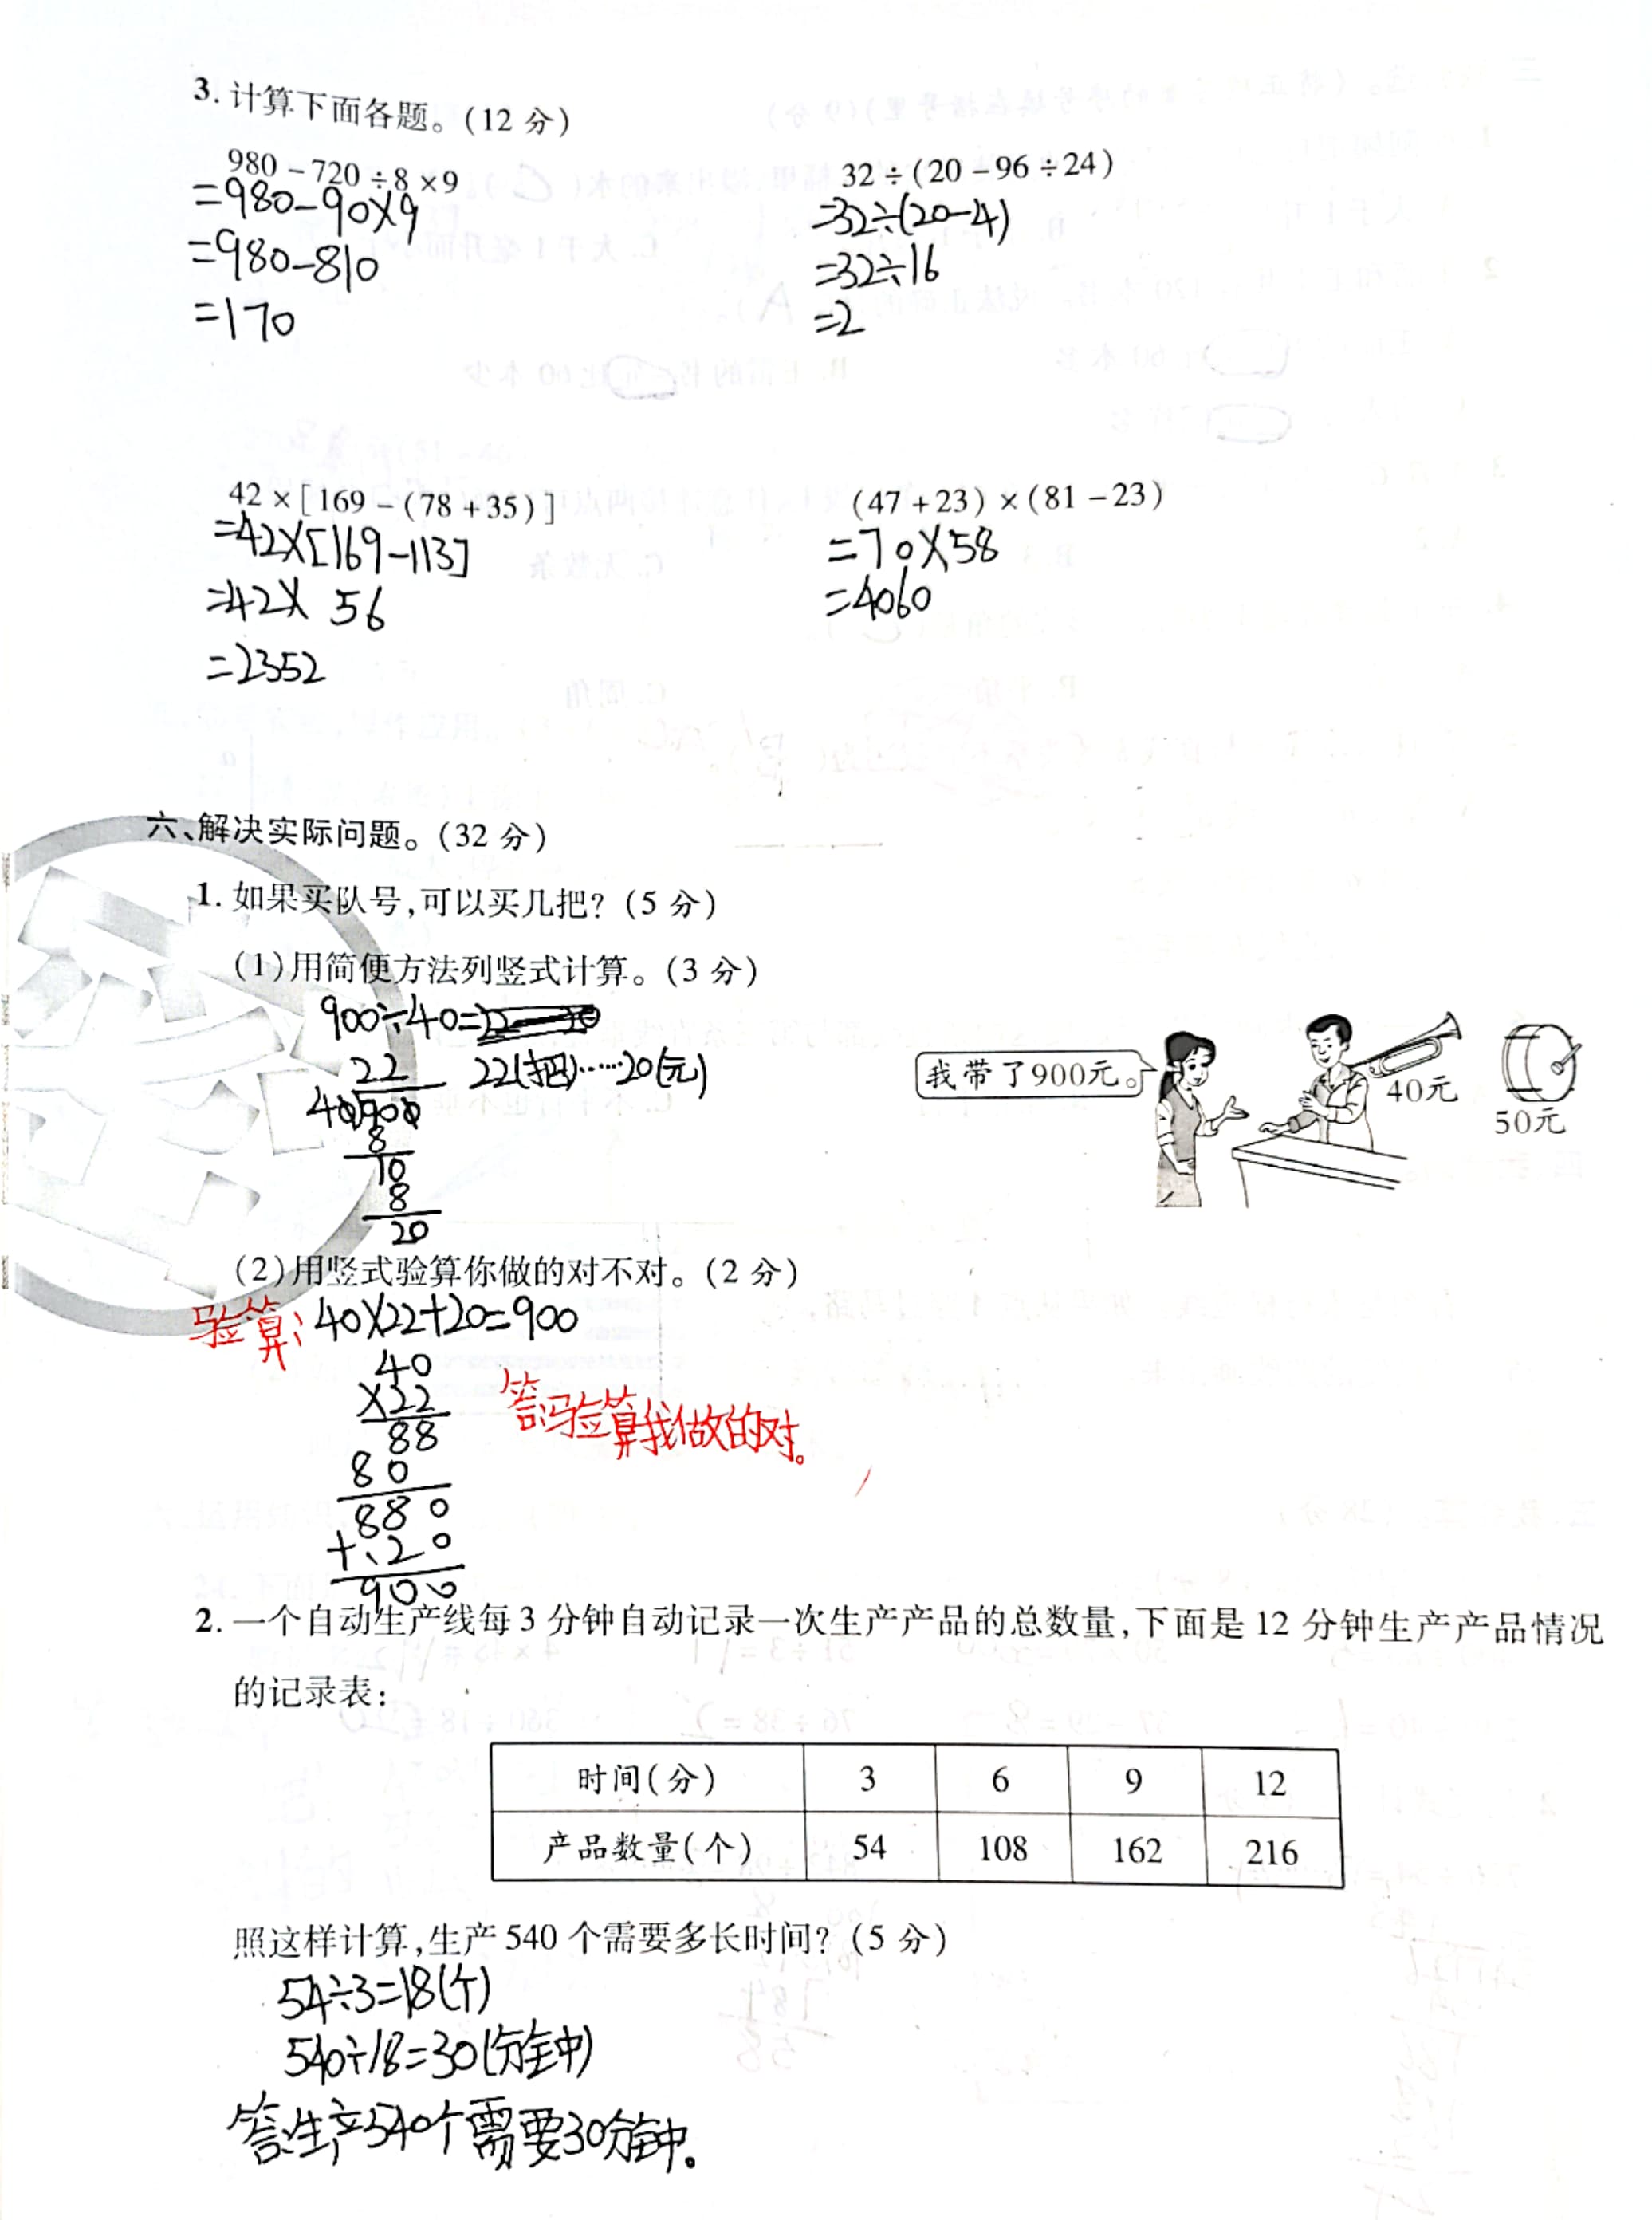 3. 计算下面各题。(12 分)
980 - 720 ÷ 8 × 9
=980-90×9
=980-810
=170
32 ÷ (20 - 96 ÷ 24)
=32÷(20-4)
=32÷16
=2
42 × [169 - (78 + 35)]
=42×[169-113]
=42× 56
=2352
(47 + 23) × (81 - 23)
=70×58
=4060
六、解决实际问题。(32 分)
1. 如果买队号,可以买几把? (5 分)
(1)用简便方法列竖式计算。(3 分)
900÷40=
22(把)……20(元)
22
40 900
8
10
8
20
我带了900元。
40元
50元
(2)用竖式验算你做的对不对。(2 分)
验算: 40×22+20=900
40
×22
88
80
880
+20
900
答:验算我做的对。
2. 一个自动生产线每 3 分钟自动记录一次生产产品的总数量,下面是 12 分钟生产产品情况
的记录表:
时间(分) 3 6 9 12
产品数量(个) 54 108 162 216
照这样计算,生产 540 个需要多长时间? (5 分)
54÷3=18(个)
540÷18=30(分钟)
答:生产540个需要30分钟。